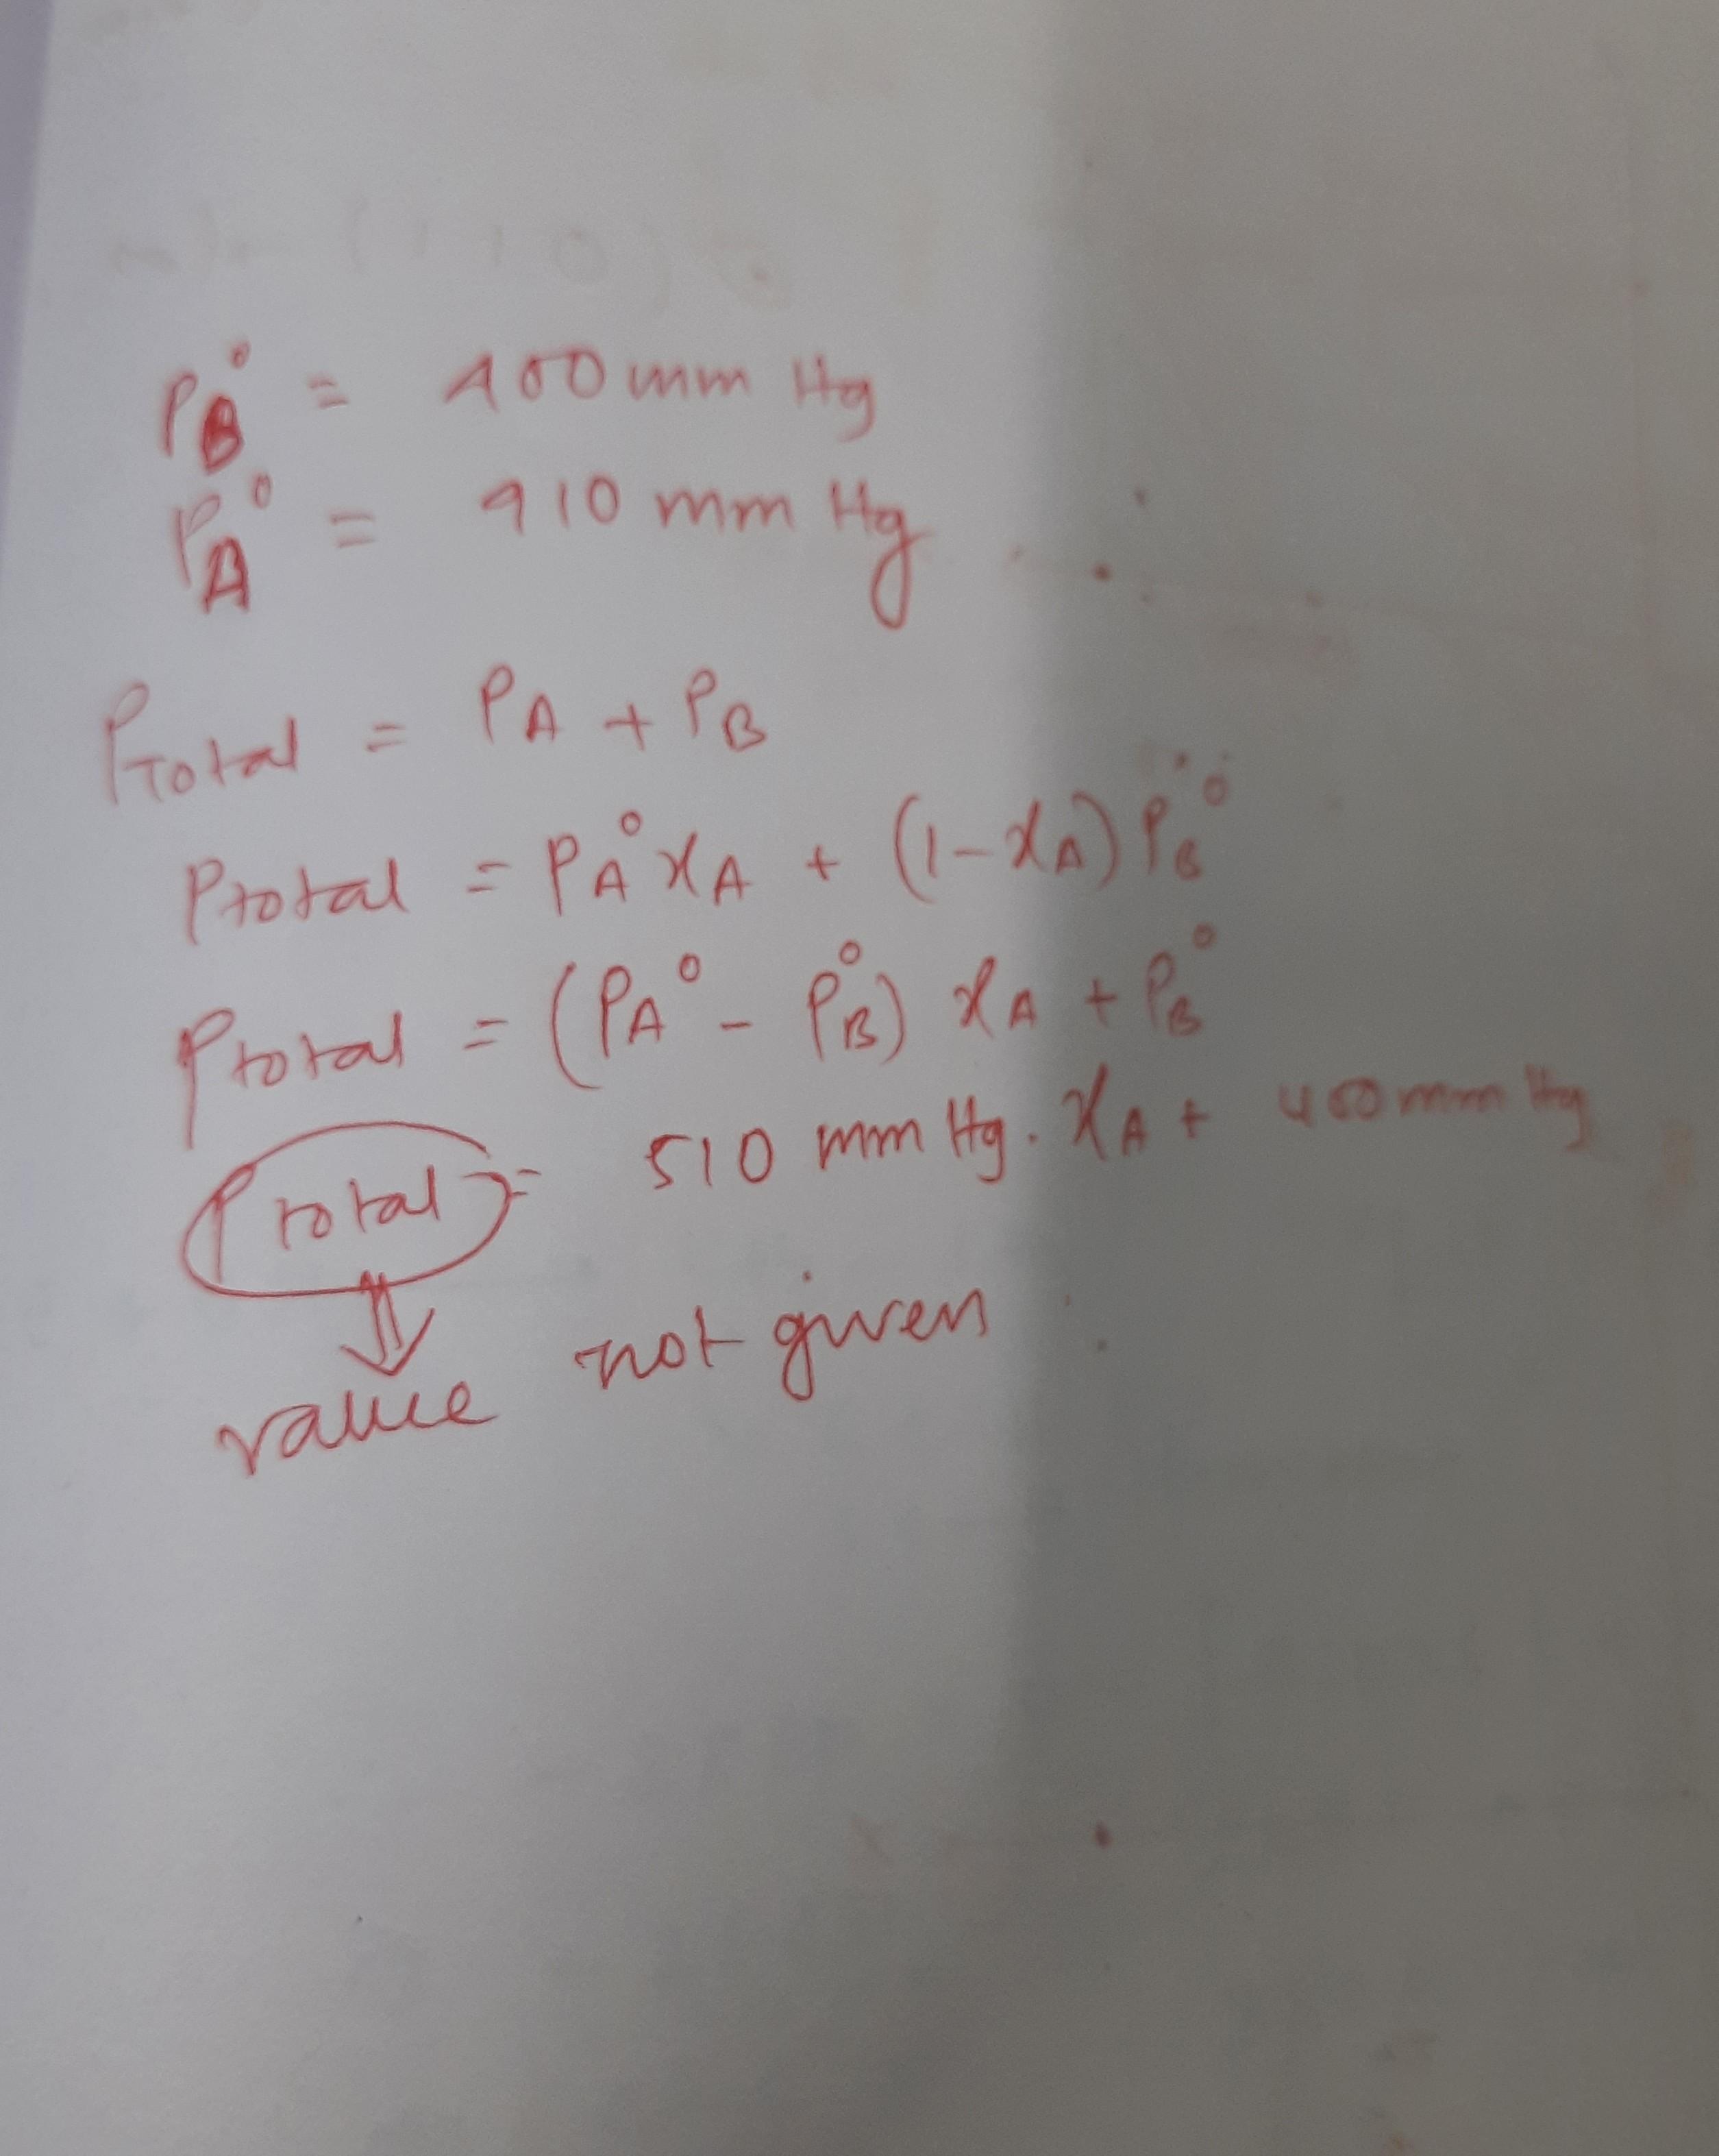 P°B = 400 mm Hg
P°A = 910 mm Hg
PTotal = PA + PB
Ptotal = P°A xA + (1-xA) P°B
Ptotal = (PA° - P°B) xA + P°B
Ptotal = 510 mm Hg. xA + 400 mm Hg
value not given